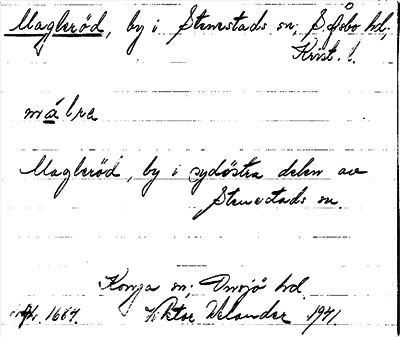 Magleröd, by i Stenestads sn, S. Åsbo hd,
Krist. l.
målra
Magleröd, by i sydöstra delen av
Stenestads sn.
Konga sn, Onsjö hd.
1684. Viktor Velander 1941.